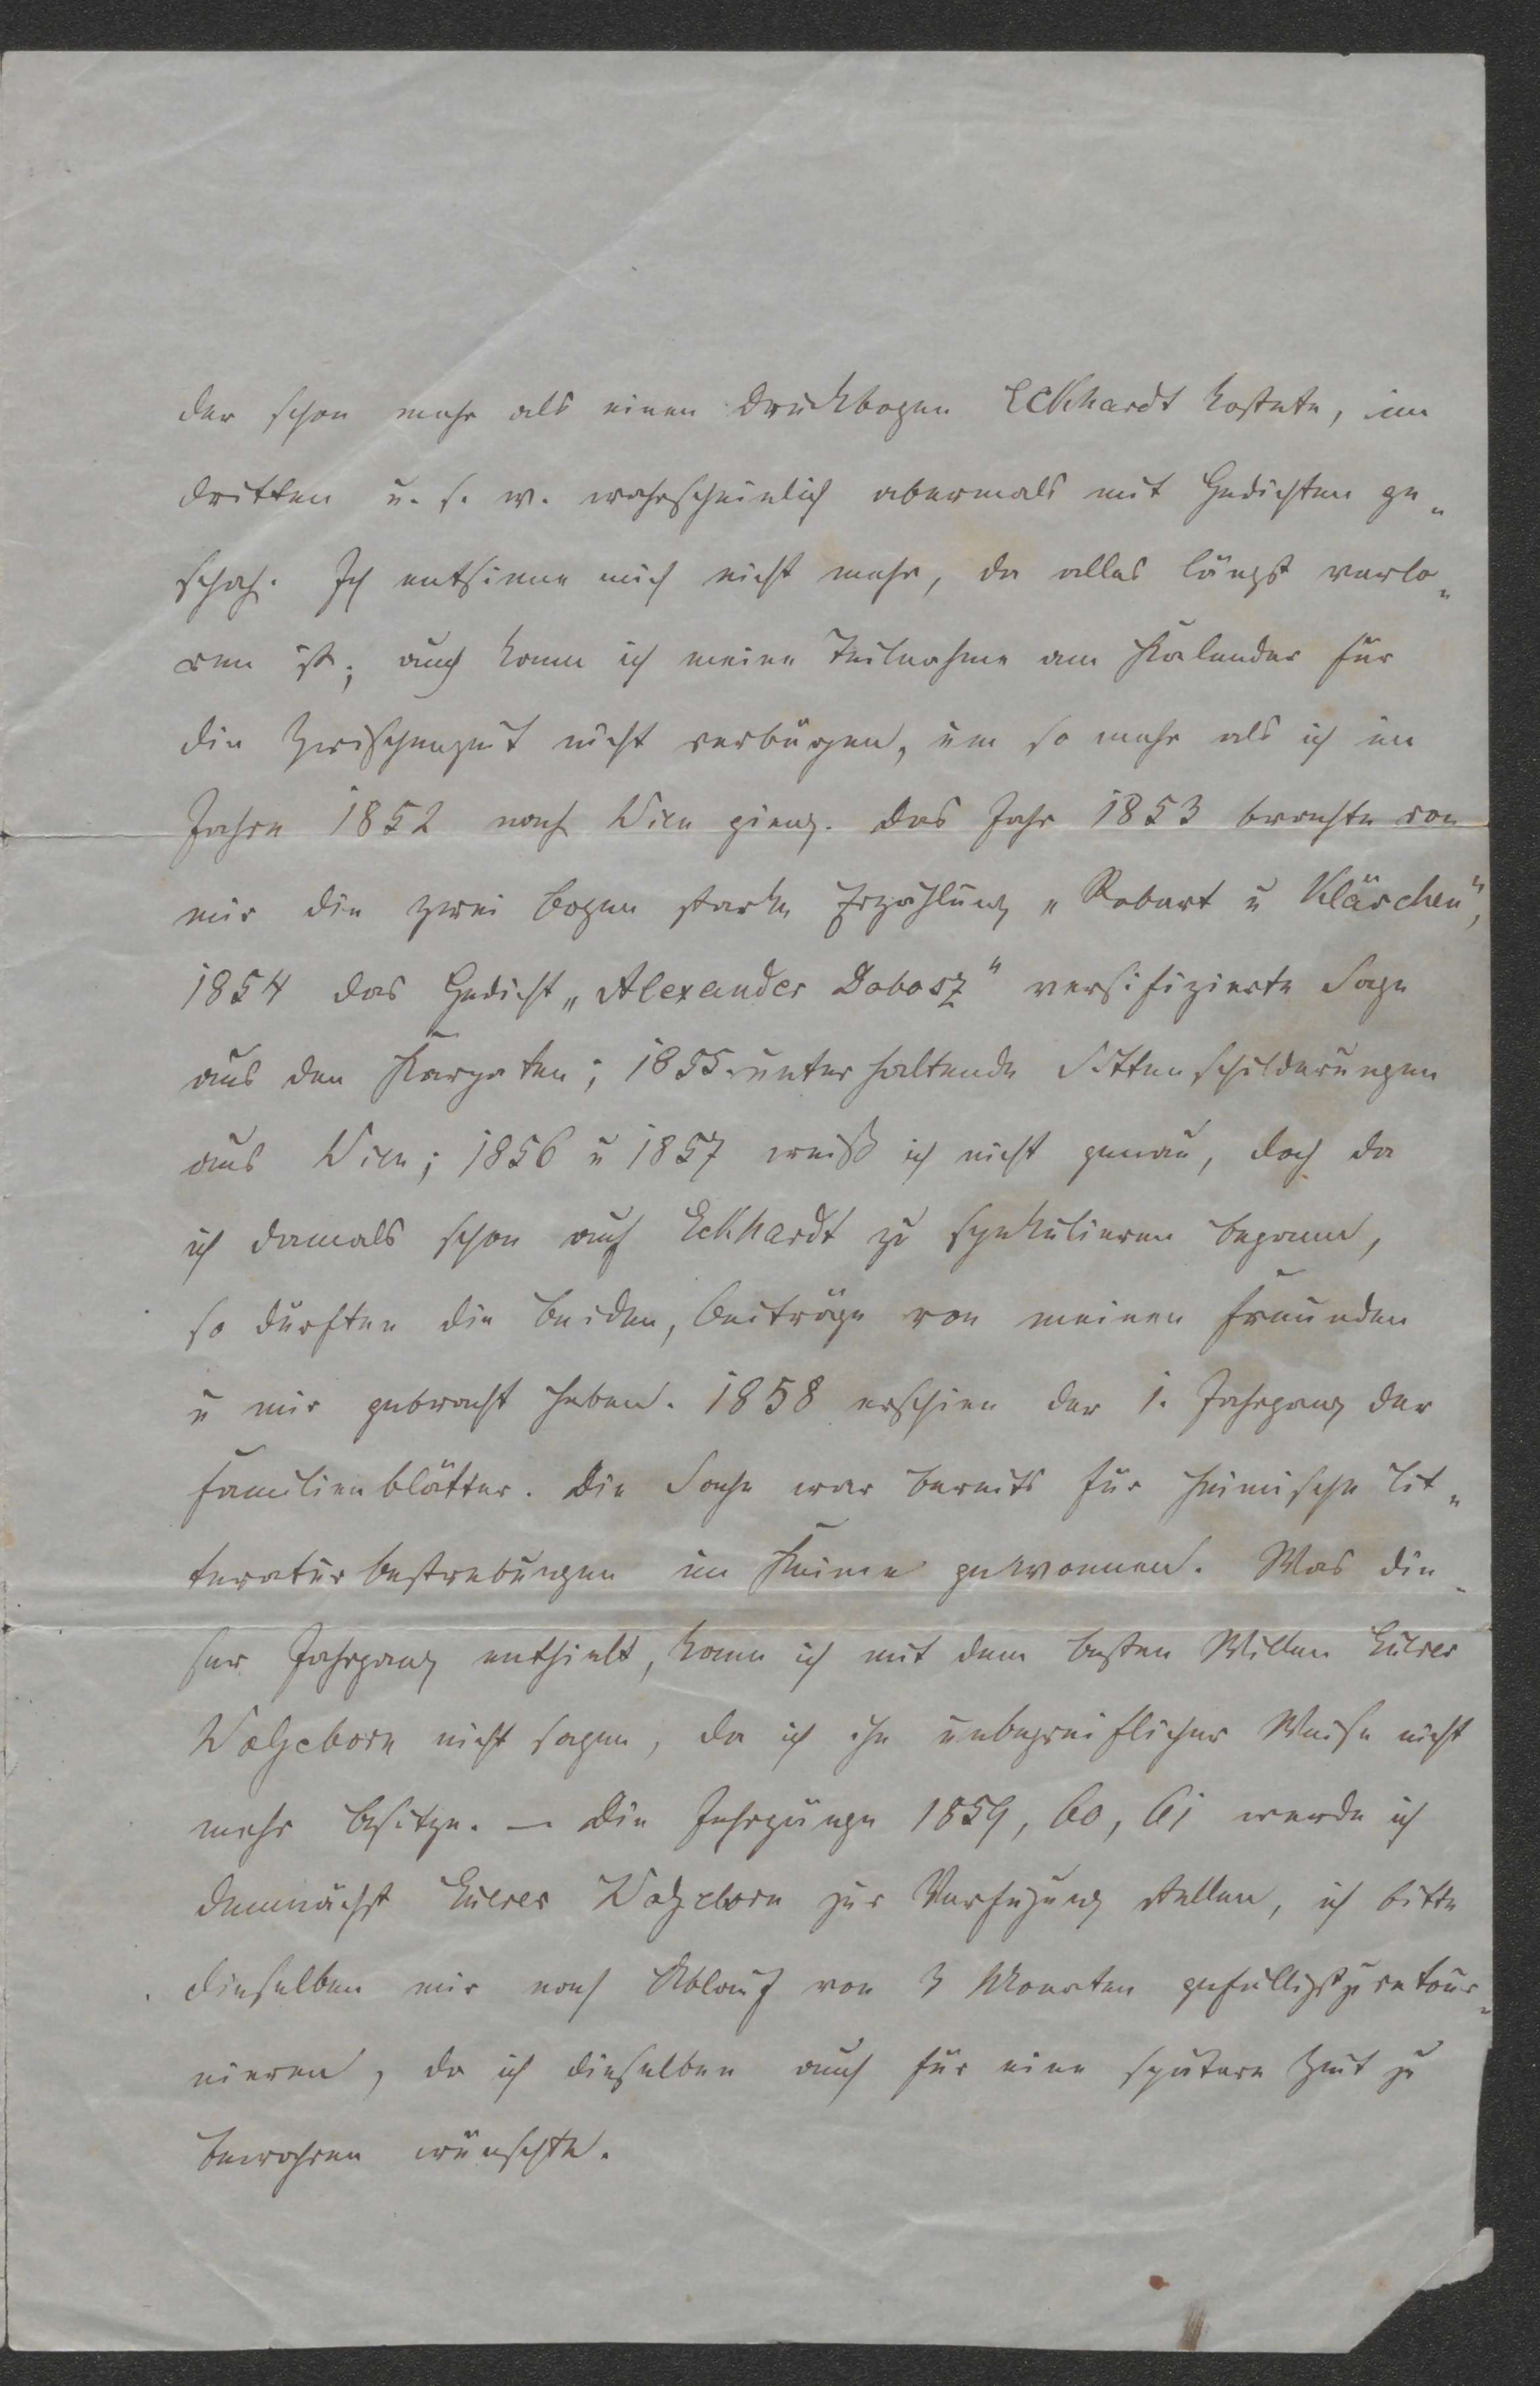 der schon mehr als einen Druckbogen Eckhardt kostete, im
dritten u. s. w. wahrscheinlich abermals mit Gedichten ge„
schah. Ich entsinne mich nicht mehr, da alles längst verlo„
ren ist; auch kann ich meine Teilnahme am Kalender für
die Zwischenzeit nicht verbürgen, um so mehr als ich im
Jahre 1852 nach Wien gieng. Das Jahr 1853 brachte von
mir die zwei Bogen starke Erzählung „Robert u Klärchen",
1854 das Gedicht „Alexander Dobosz" versifizierte Sage
aus den Karpaten; 1855 unterhaltende Sittenschilderungen
aus Wien; 1856 u 1857 weiß ich nicht genau, doch da
ich damals schon auf Eckhardt zu spekulieren begann,
so durften die beiden, Beiträge von meinen Freunden
u mir gebracht haben. 1858 erschien der 1. Jahrgang der
Familienblätter. Die Sache war bereits für heimische Lit„
teraturbestrebungen im Keime gewonnen. Was die„
ser Jahrgang enthielt, kann ich mit dem besten Willen Euerer
Wolgeborn nicht sagen, da ich ihn unbegreiflicher Weise nicht
mehr besitze. — Die Jahrgänge 1859, 60, 61 werde ich
demnächst Euerer Wolgeborn zur Verfügung stellen, ich bitte
dieselben mir nach Ablauf von 3 Monaten gefälligst zu retour„
nieren, da ich dieselben auch für eine spätere Zeit zu
bewahren wünschte.